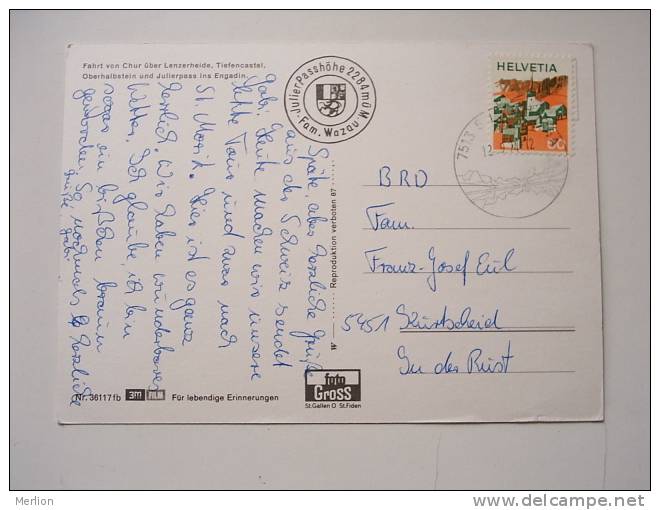 Fahrt von Chur über Lenzerheide, Tiefencastel,
Oberhalbstein und Julierpass ins Engadin.
Julier Passhöhe 2284 m.ü.M.
Fam. Wazau
HELVETIA
7513
Späte, aber herzliche Grüße
aus der Schweiz sendet
Gabi. Heute machen wir unsere
letzte Tour und zwar nach
St. Moritz. Hier ist es ganz
herrlich. Wir haben wunderbares
Wetter. Ich glaube, ich bin
sogar ein bißchen braun
geworden. So, nochmals herzliche
Grüße Gabi
Reproduktion verboten 87
W
BRD
Fam.
Franz-Josef Eul
5451 Kurtscheid
In der Rüst
Nr. 36117 fb 3m FILM Für lebendige Erinnerungen
foto
GROSS
St.Gallen O St.Fiden
Merlion
www.delcampe.net